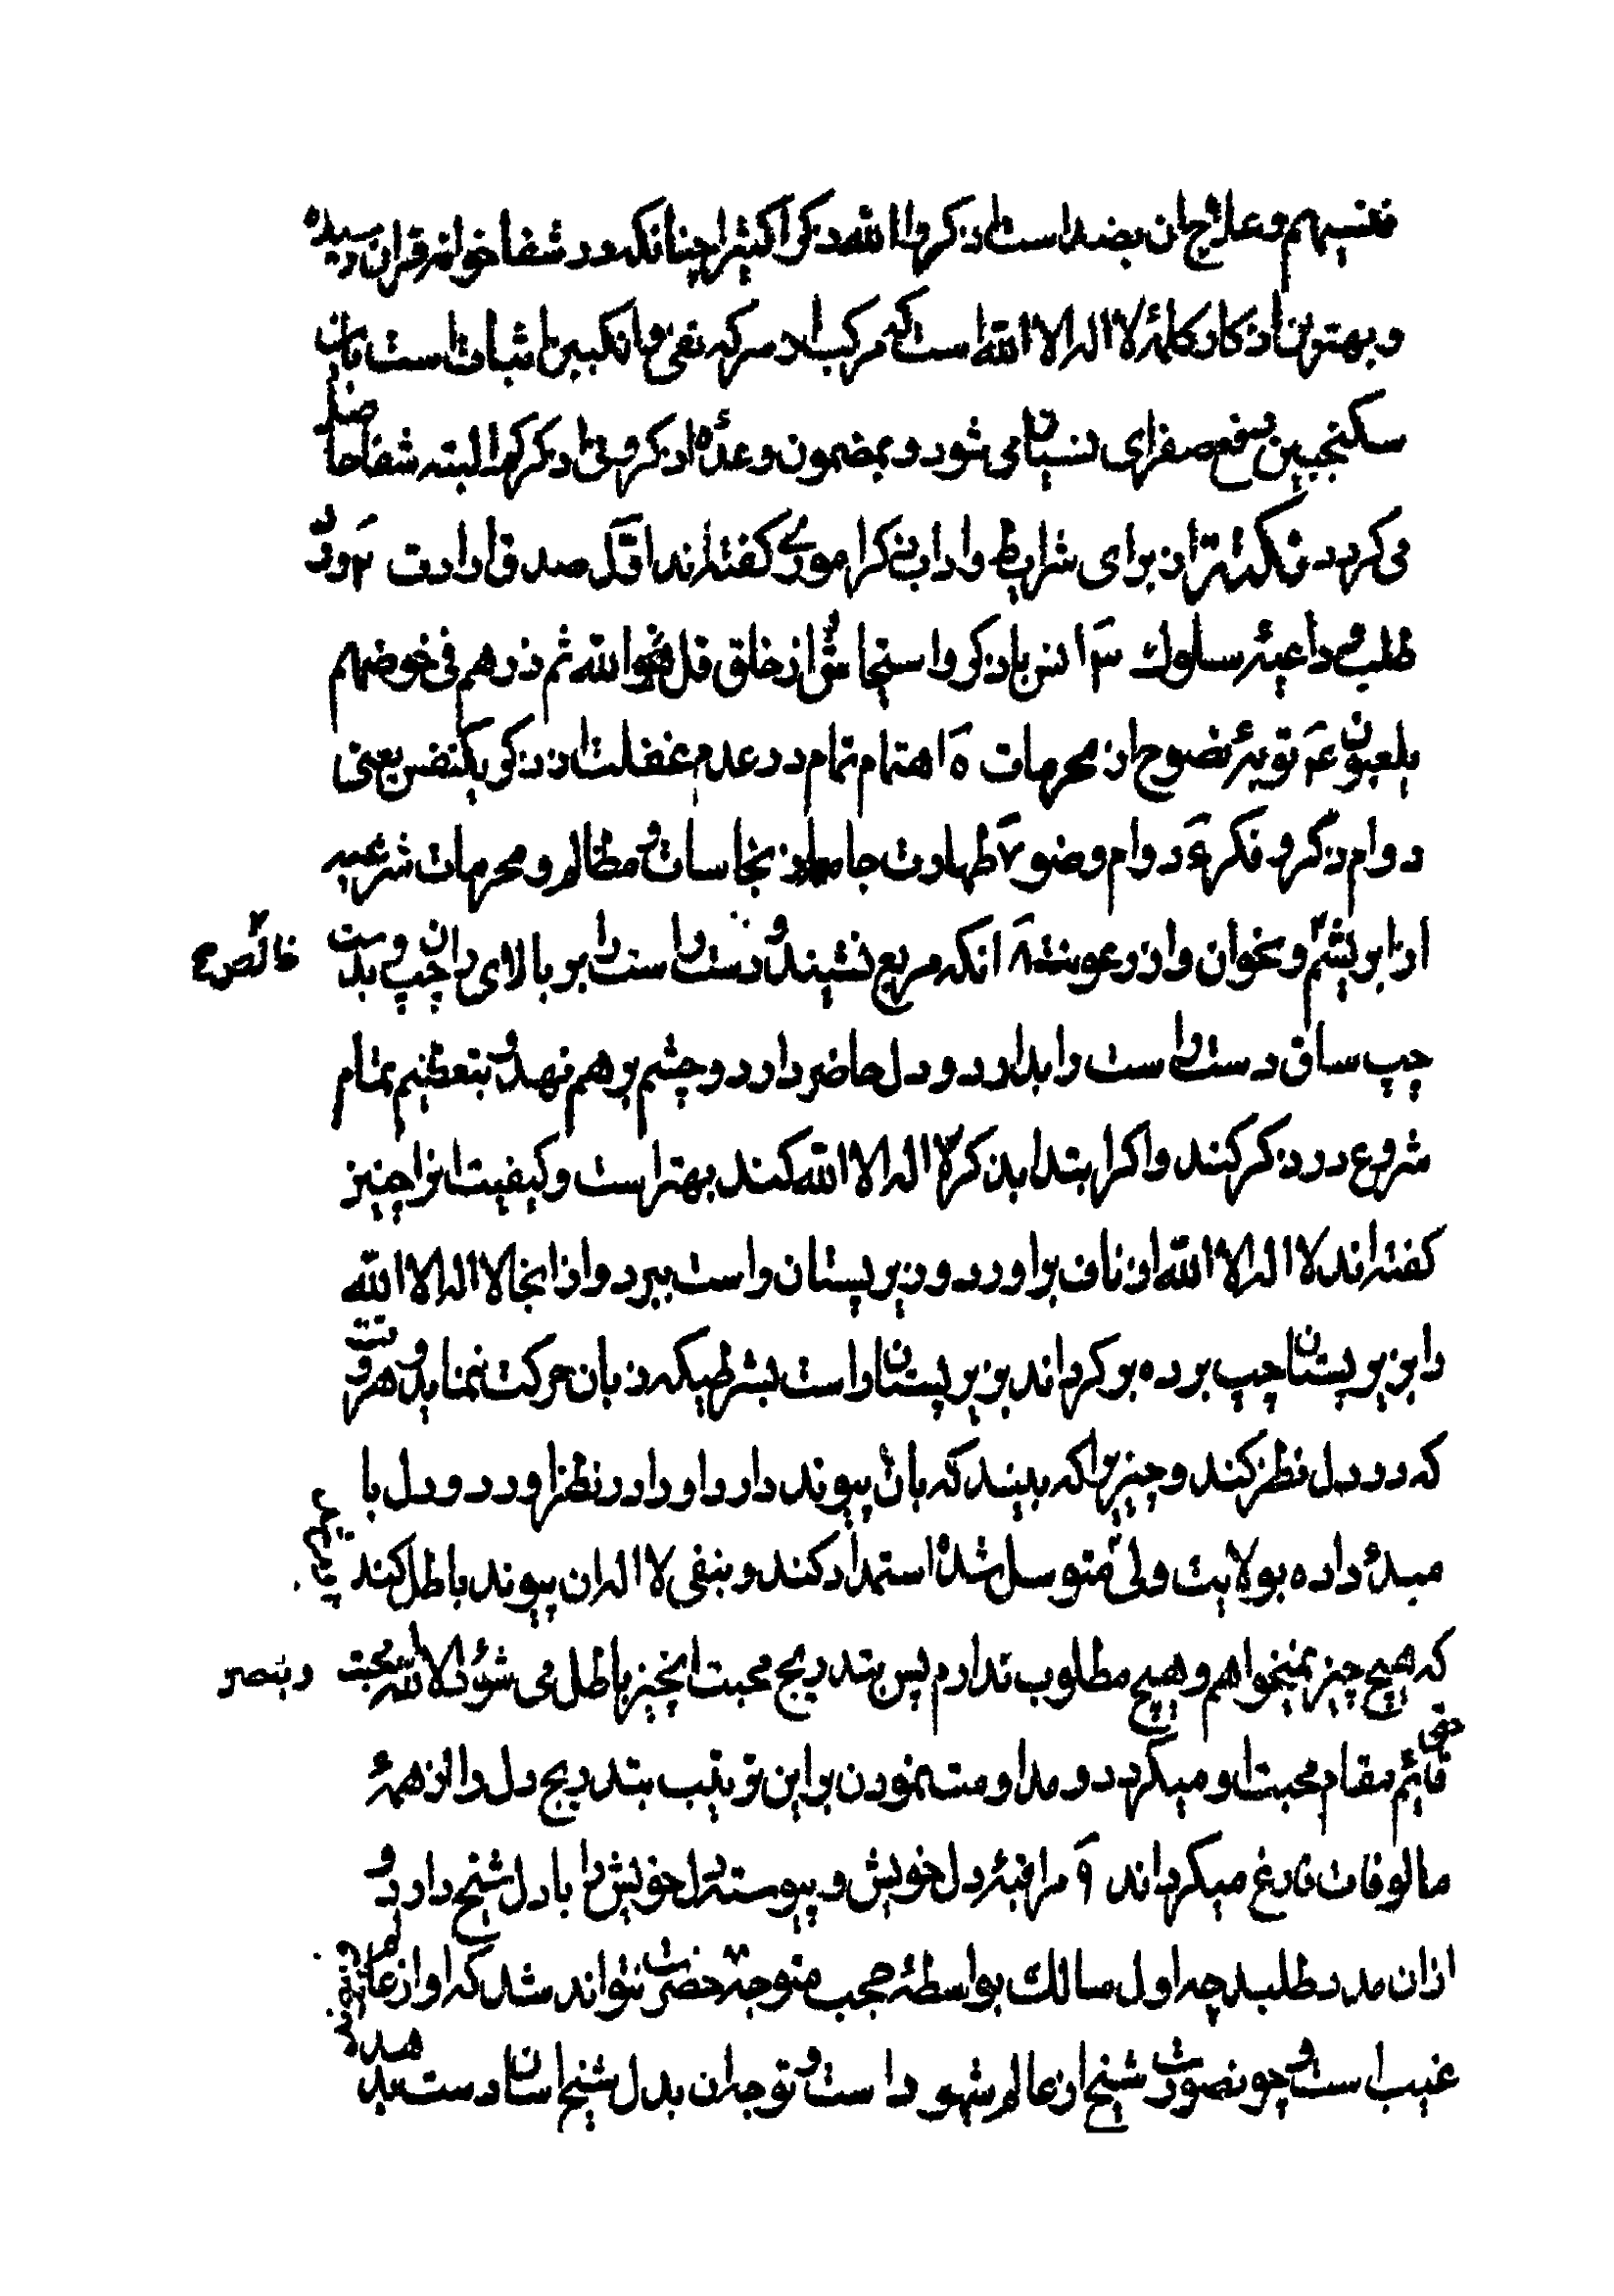 فنسیهم و علاج ان بضد است اذکروا الله ذکرا کثیرا چنانکه در شفا خواندن قران رسیده
و بهترین اذکار کلمهٔ لا اله الا الله است که مرکب از سرکه نفی و انکبین اثبات است بان
سکنجبین رفع صفرای نسیان می شود و بمضمون وعدهٔ اذکرونی اذکرکم البته شفا حاصل
می کردد نکته از برای شرایط و اداب ذکر اموری کفته اند اول صدق ارادت ۲ درد
طلب و داعیه سلوک ۳ انس با ذکر و استیحاش از خلق قل الله ثم ذرهم فی خوضهم
یلعبون ۴ توبهٔ نصوح از محرمات ۵ اهتمام تمام در عدم غفلت از ذکر یکنفس یعنی
دوام ذکر و فکر ۶ دوام وضو ۷ طهارت جامه از نجاسات و مظالم و محرمات شرعیه
از ابریشم و نحوان و از رعونت ۸ انکه مربع نشیند و دست راست را بر بالای ران چپ و بدست
خالص
چپ ساق دست راست را بدارد و دل حاضر دارد و چشم بر هم نهد و بتعظیم تمام
شروع در ذکر کند و اکر ابتدا بذکر لا اله الا الله کند بهتر است و کیفیت انرا چنین
کفته اند لا اله الا الله از ناف براورد و زیر پستان راست ببرد و از انجا لا اله الا الله
را بزیر پستان چپ برده برکرداند بزیر پستان راست بشرطیکه زبان حرکت ننماید و هر وقت
که در دل نظر کند و چیزیرا که ببیند که بان پیوند دارد او را در نظر اورد و دل با
مبدء داده بولایت ولی متوسل شده استمداد کند و بنفی لا اله ان پیوند باطل کند
که هیچ چیز نمیخواهم و هیچ مطلوب ندارم پس بتدریج محبت انچیز باطل می شود و الا الله محبت
حق
قائم مقام محبت او میکردد و مداومت نمودن بر این ترتیب بتدریج دل را از همهٔ
مالوفات فارغ میکرداند ۹ مراقبهٔ دل خویش و پیوسته دل خویش را با دل شیخ دارد و
ازان مدد طلبد چه اول سالک بواسطهٔ حجب متوجه حضرت نتواند شد که او از عالم
غیب است و چون صورت شیخ از عالم شهود است و توجه ان بدل شیخ اسان دست بدهد